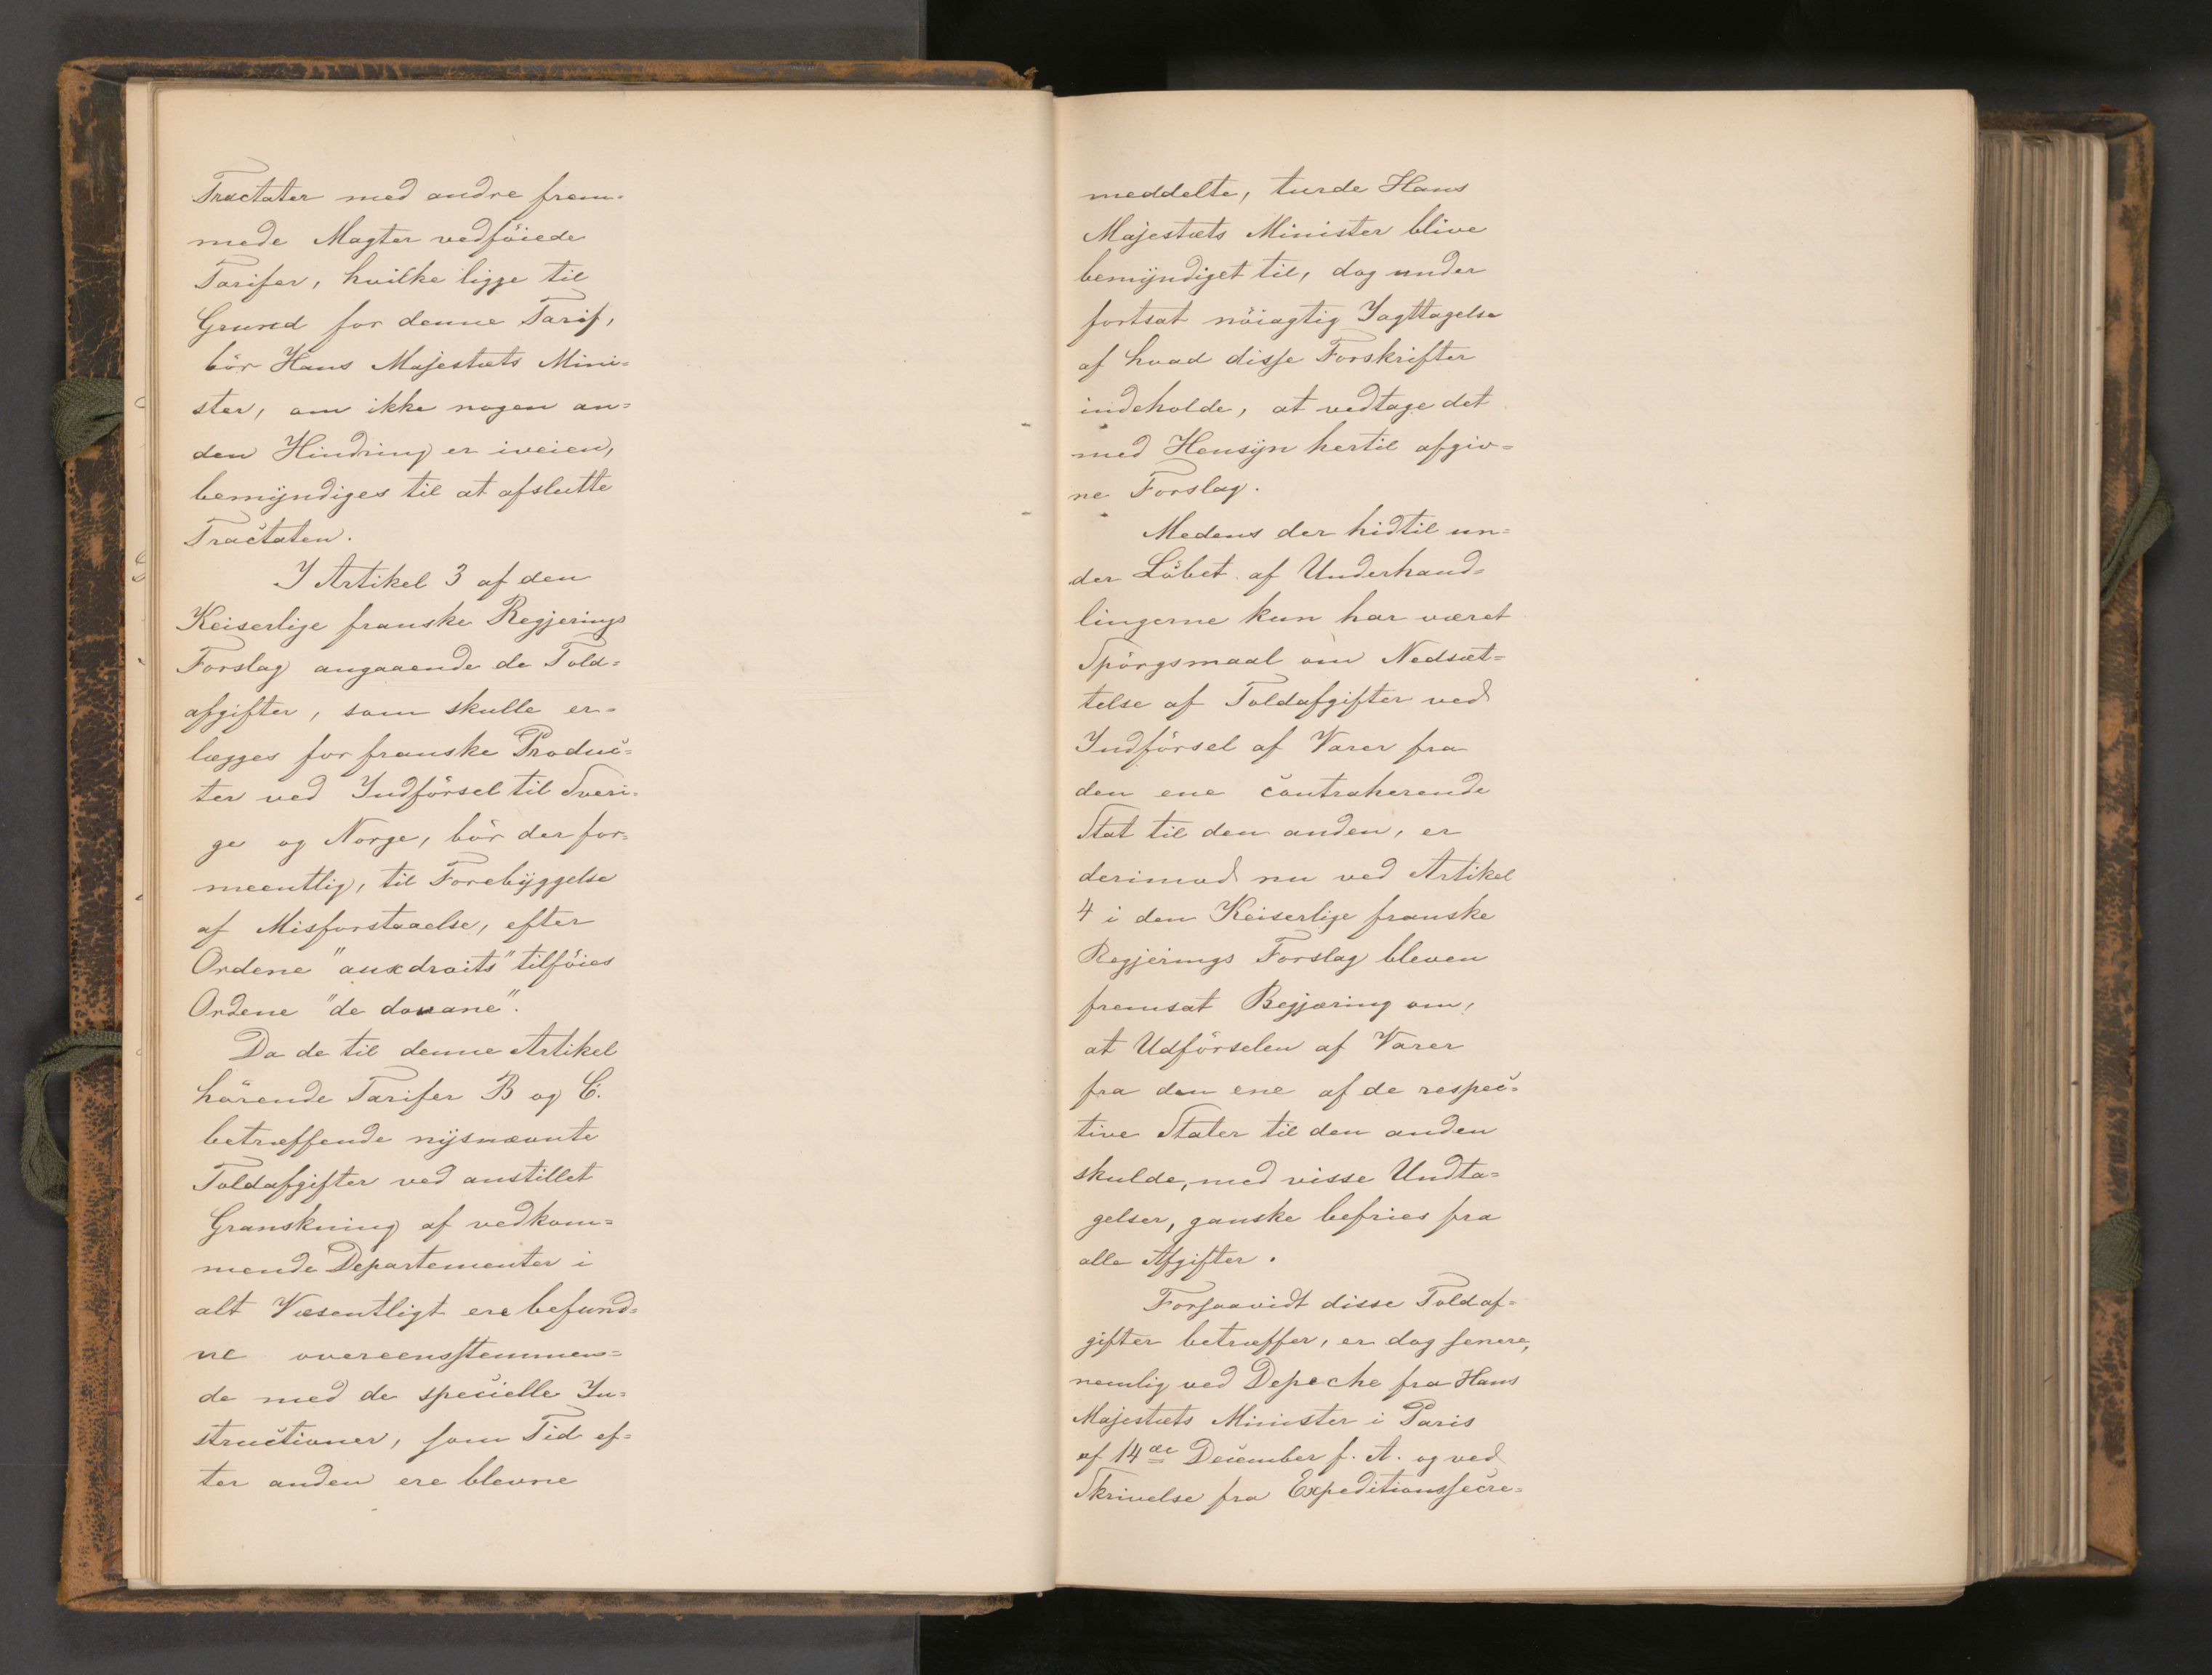 Tractater med andre frem-
mede Magter vedföiede
Tarifer, hvilke ligge til
Grund for denne Tarif,
bör Hans Majestæts Mini=
ster, om ikke nogen an=
den Hindring er iveien,
bemÿndiges til at afslutte
Tractaten.
I Artikel 3 af den
Keiserlige franske Regjerings
Forslag angaaende de Told=
afgifter, som skulle er=
lægges for franske Produc=
ter ved Indförsel til Sveri=
ge og Norge, bör der for=
meentlig, til Forebÿggelse
af Misforstaaelse, efter
Ordene "aux droits" tilföies
Ordene "de douane".
Da de til denne Artikel
hörende Tarifer B og C.
betræffende nÿsnævnte
Toldafgifter ved anstillet
Granskning af vedkom=
mende Departementer i
alt Væsentligt ere befund=
ne overeensstemmen=
de med de specielle In=
structioner, som Tid ef=
ter anden ere blevne
meddelte, turde Hans
Majestæts Minister blive
bemÿndiget til, dog under
fortsat nöiagtig Iagttagelse
af hvad disse Forskrifter
indeholde, at vedtage det
med Hensÿn hertil afgiv=
ne Forslag.
Medens der hidtil un=
der Löbet af Underhand=
lingerne kun har været
Spörgsmaal om Nedsæt=
telse af Toldafgifter ved
Indförsel af Varer fra
den ene contraherende
Stat til den anden, er
derimod nu ved Artikel
4 i den Keiserlige franske
Regjerings Forslag bleven
fremsat Begjæring om,
at Udförselen af Varer
fra den ene af de respec=
tive Stater til den anden
skulde, med visse Undta=
gelser, ganske befries fra
alle Afgifter.
Forsaavidt disse Toldaf=
gifter betræffer, er dog senere,
nemlig ved Depeche fra Hans
Majestæts Minister i Paris
af 14de December f. A. og ved
Skrivelse fra Expeditionssecre=